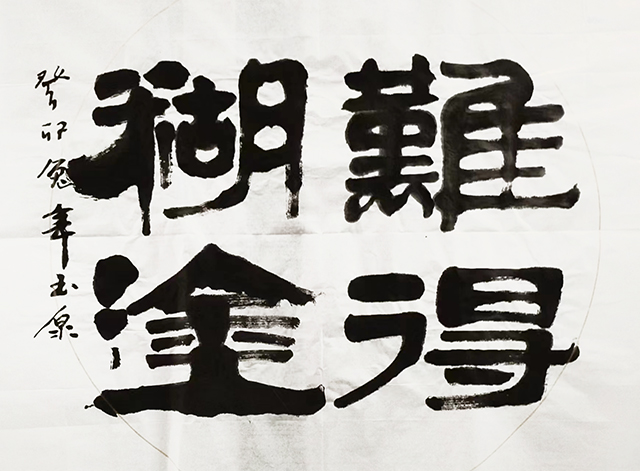 難得
糊塗
癸卯兔年玉